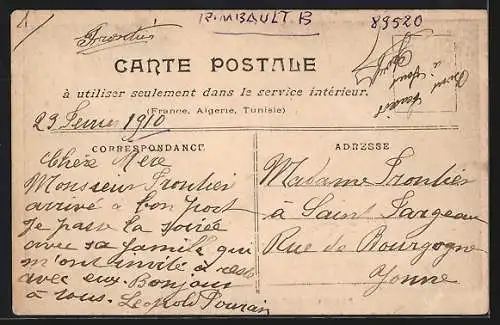 R.MBAULT.B
89520
CARTE POSTALE
à utiliser seulement dans le service intérieur.
(France, Algerie, Tunisie)
23 Février 1910
CORRESPONDANCE
Chère Mère
Monsieur Froutier
arrivé à bon port
Je passe la soirée
avec sa famille qui
m'ont invité à reste
avec eux. Bonjour
à tous. Léopold
ADRESSE
Madame Froutier
à Saint Fargeau
Rue de Bourgogne
Yonne